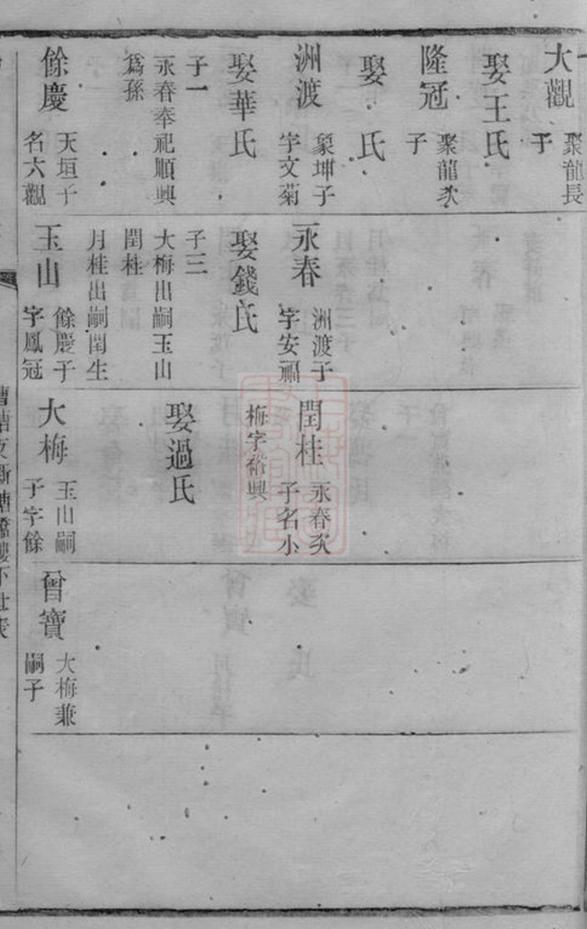 大觀
聚龍長
子
娶王氏
隆冠
聚龍次
子
娶 氏
洲渡
象坤子
字文菊
娶華氏
子一
永春奉祀順興
爲孫
餘慶
天垣子
名六觀
永春
洲渡子
字安福
娶錢氏
子三
大梅出嗣玉山
閏桂
月桂出嗣閏生
玉山
餘慶子
字鳳冠
閏桂
永春次
子名小
梅字裕興
娶過氏
大梅
玉山嗣
子字餘
曾寶
大梅兼
嗣子